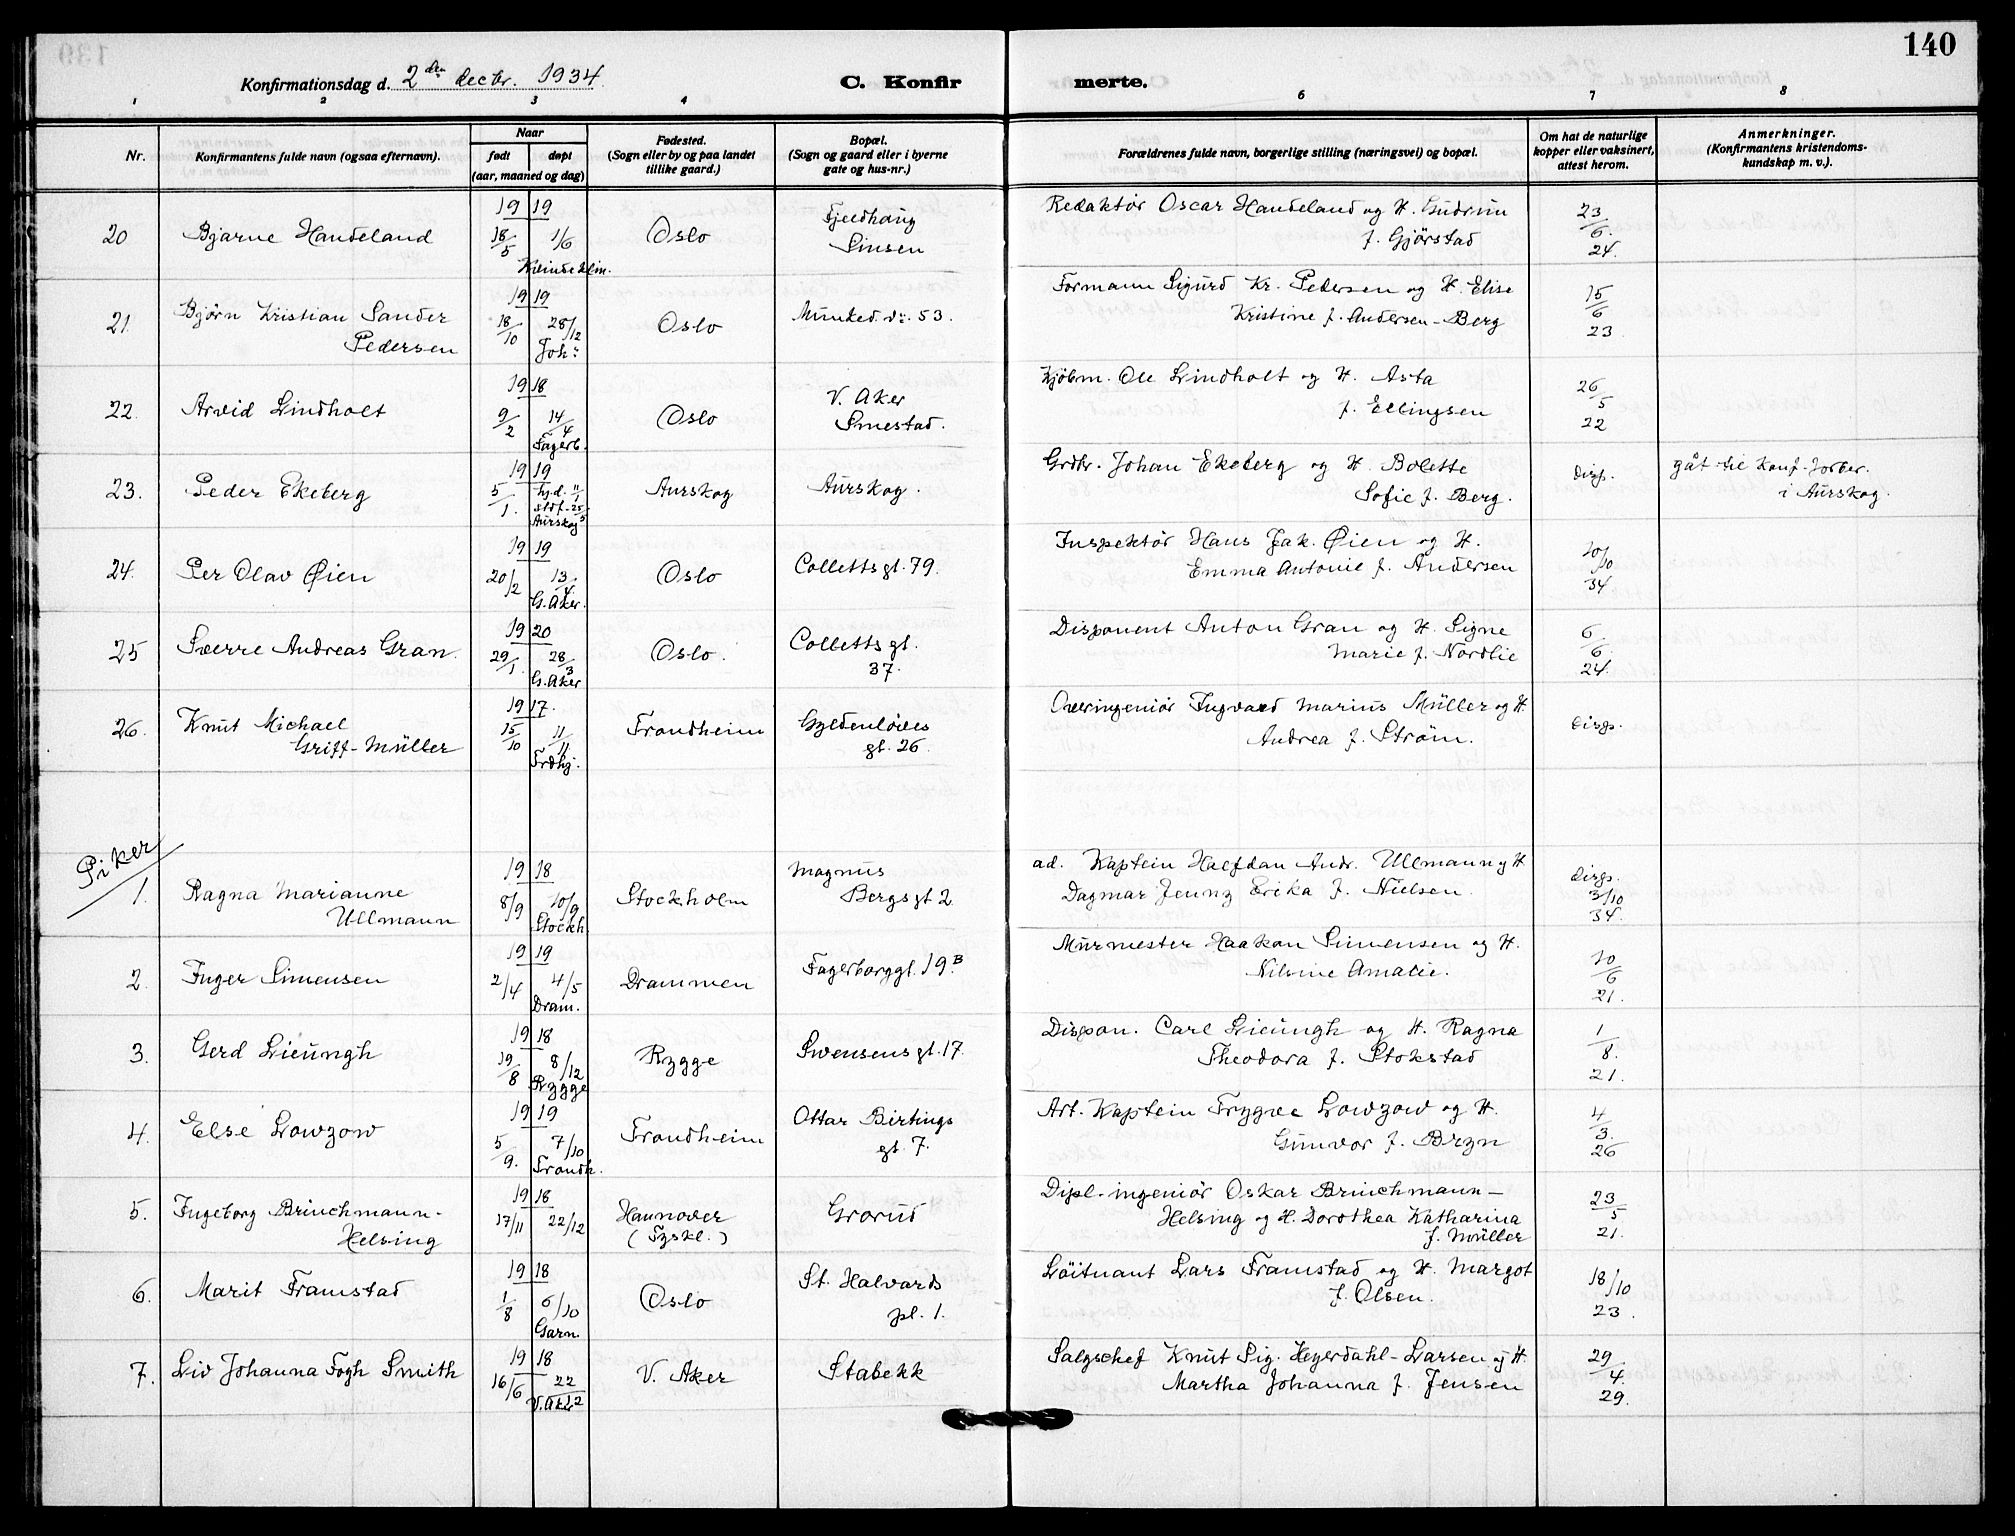 140
Konfirmationsdag d. 2den decbr. 1934.
C. Konfirmerte.
1 2 3 4 6 7 8
Nr.
Konfirmantens fulde navn (ogsaa efternavn).
Naar
født
døpt
(aar, maaned og dag)
Fødested.
(Sogn eller by og paa landet
tillike gaard.)
Bopæl.
(Sogn og gaard eller i byerne
gate og hus-nr.)
Forældrenes fulde navn, borgerlige stilling (næringsvei) og bopæl.
Om hat de naturlige
kopper eller vaksinert,
attest herom.
Anmerkninger.
(Konfirmantens kristendoms-
kundskap m. v.).
20 Bjarne Handeland
19 19
18/5 1/6
Kvindeklin.
Oslo
Fjeldhaug
Sinsen
Redaktør Oscar Handeland og H. Gudrun
f. Gjörstad
23/6. 24.
21. Bjørn Kristian Sander
Pedersen
19 19
18/10 28/12
Joh:
Oslo
Munked.v: 53.
Formann Sigurd Kr. Pedersen og H. Elise
Kristine f. Andersen-Berg
15/6 23
22. Arvid Lindholt
19 18
9/2 14/4
Fagerb.
Oslo
V. Aker
Smestad.
Kjöbm. Ole Lindholt og H. Asta
f. Ellingsen
26/5 22
23. Peder Ekeberg
19 19
5/1. hj.d. 11/1
stdf. 25/5
Aurskog
Aurskog
Aurskog.
Grdbr. Johan Ekeberg og H. Bolette
Sofie f. Berg.
disp.
gåt til konf-forber.
i Aurskog.
24. Per Olav Øien
19 19
20/2 13/4
G. Aker.
Oslo
Colletts gt. 79.
Inspektør Hans Jak. Øien og H.
Emma Antonie f. Andersen
10/10 34
25 Sverre Andreas Gran.
19 20
29/1. 28/3
G. Aker
Oslo.
Colletts gt.
37.
Disponent Anton Gran og H. Signe
Marie f. Nordlie
6/6. 24.
26. Knut Michael
Griff-Müller
19 17.
15/10 11/11
Trdhj.
Trondheim
Gyldenløves
gt. 26.
Overingeniør Ingvard Marius Müller og H.
Andrea f. Strøm.
disp.
Piker
1. Ragna Marianne
Ullmann
19 18
8/9 10/9
Stockh.
Stockholm
Magnus
Bergs gt 2.
ad. Kaptein Halfdan Andr. Ullmann og H
Dagmar Jenny Erika f. Nielsen.
disp.
3/10 34.
2. Inger Simensen
19 19
2/4 4/5
Dram.
Drammen
Fagerborggt. 19.B
Murmester Haakon Simensen og H.
Nilsine Amalie.
10/6 21.
3. Gerd Lieungh
19 18
19/8 8/12
Rygge
Rygge
Svensens gt. 17.
Dispon. Carl Lieungh og H. Ragna
Theodora f. Stokstad
1/8. 21.
4. Else Lowzow
19 19
5/9. 7/10
Trondh.
Trondheim
Ottar Birtings
gt. 7.
Art. Kaptein Trygve Lowzow og H.
Gunvor f. Bryn
4/3. 26
5. Ingeborg Brinchmann-
Helsing
19 18
17/11 22/12
Hannover
(Tyskl.)
Grorud
Dipl-ingeniør Oskar Brinchmann-
Helsing og H. Dorothea Katharina
f. Müller
23/5 21.
6. Marit Framstad
19 18
1/8 6/10
Garn.
Oslo
St. Halvards
pl. 1.
Löitnant Lars Framstad og H. Margot
f. Olsen.
18/10 23.
7. Liv Johanna Fogh Smith
19 18
16/6 22/12
V. Aker
V. Aker
Stabekk
Salgschef Knut Sig. Heyerdahl-Larsen og H.
Martha Johanna f. Jensen
29/4. 29.